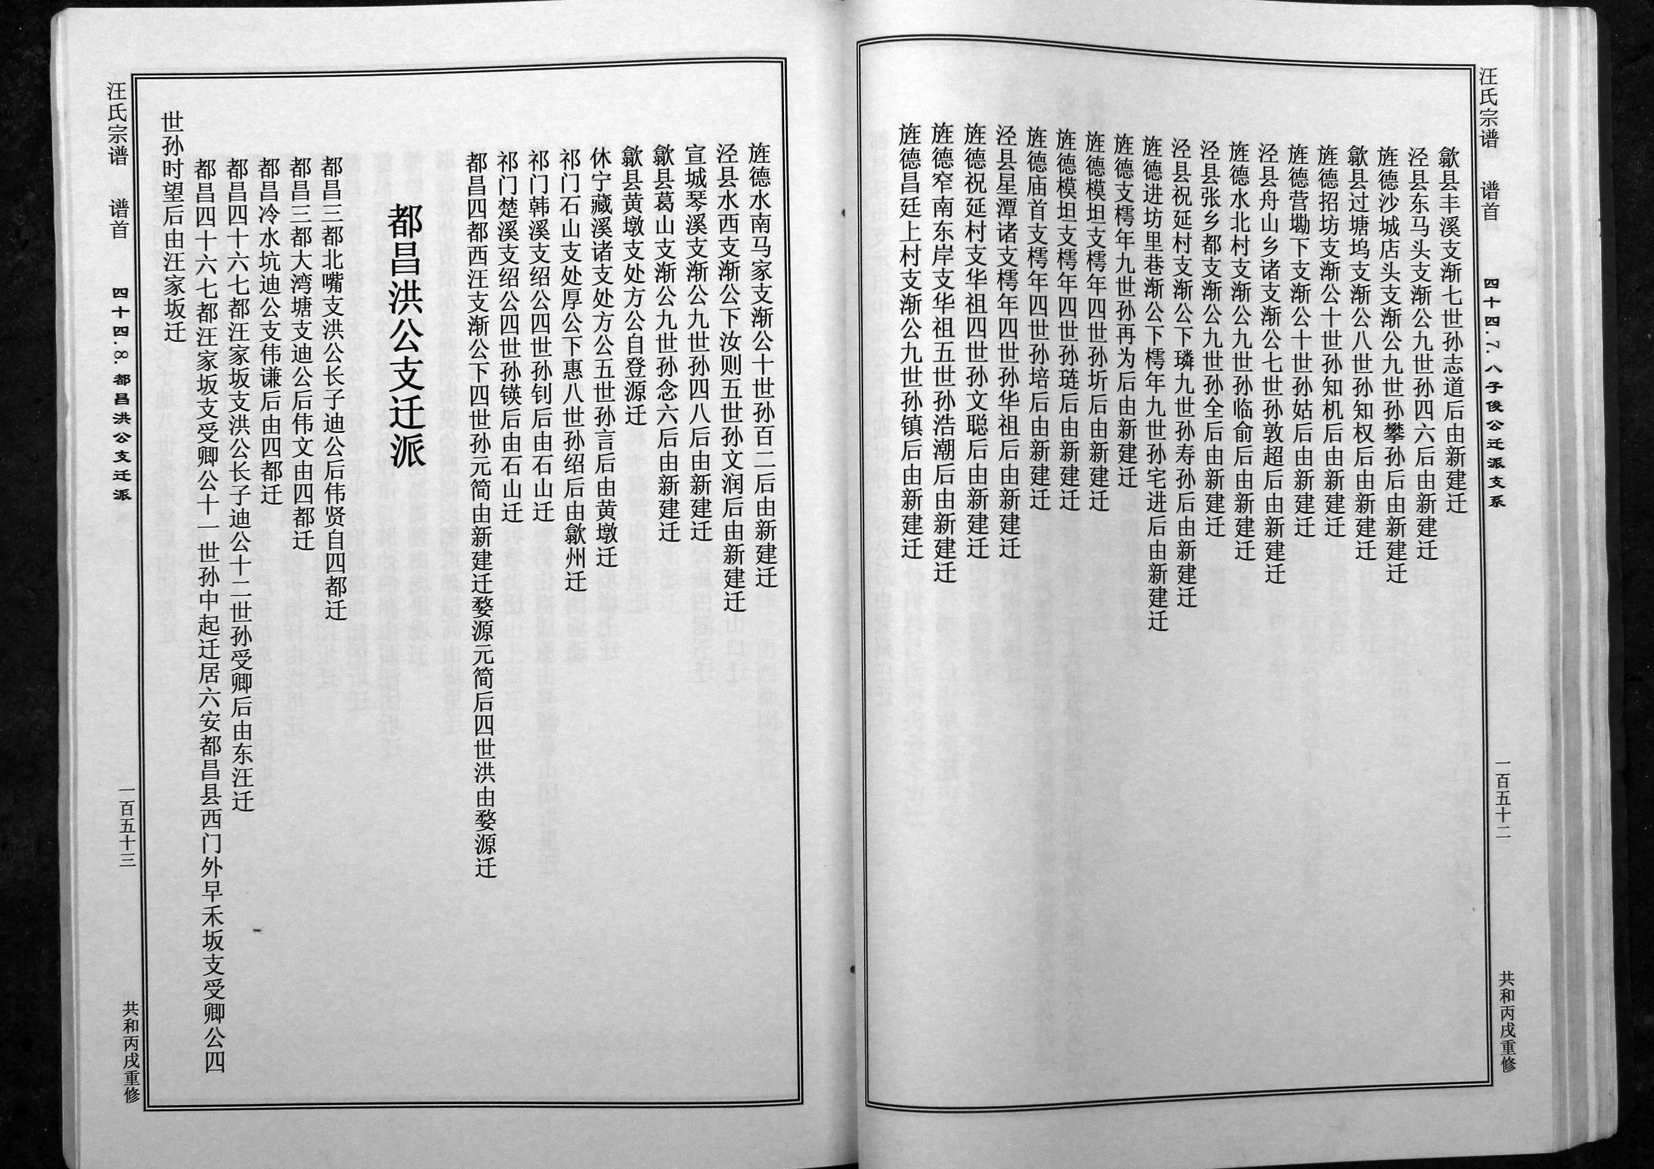 汪氏宗谱 谱首 四十四.7.八子俊公迁派支系 一百五十二 共和丙戌重修
歙县丰溪支渐七世孙志道后由新建迁
泾县东马头支渐公九世孙四六后由新建迁
旌德沙城店头支渐公九世孙攀孙后由新建迁
歙县过塘坞支渐公八世孙知权后由新建迁
旌德招坊支渐公十世孙知机后由新建迁
旌德营墈下支渐公十世孙姑后由新建迁
泾县舟山乡诸支渐公七世孙敦超后由新建迁
旌德水北村支渐公九世孙临俞后由新建迁
泾县张乡都支渐公九世孙全后由新建迁
泾县祝延村支渐公下璘九世孙寿孙后由新建迁
旌德进坊里巷渐公下樗年九世孙宅进后由新建迁
旌德支樗年九世孙再为后由新建迁
旌德模坦支樗年四世孙圻后由新建迁
旌德模坦支樗年四世孙琏后由新建迁
旌德庙首支樗年四世孙培后由新建迁
泾县星潭诸支樗年四世孙华祖后由新建迁
旌德祝延村支华祖四世孙文聪后由新建迁
旌德窄南东岸支华祖五世孙浩潮后由新建迁
旌德昌廷上村支渐公九世孙镇后由新建迁
旌德水南马家支渐公十世孙百二后由新建迁
泾县水西支渐公下汝则五世孙文润后由新建迁
宣城琴溪支渐公九世孙四八后由新建迁
歙县葛山支渐公九世孙念六后由新建迁
歙县黄墩支处方公自登源迁
休宁藏溪诸支处方公五世孙言后由黄墩迁
祁门石山支处厚公下惠八世孙绍后由歙州迁
祁门韩溪支绍公四世孙钊后由石山迁
祁门楚溪支绍公四世孙锳后由石山迁
都昌四都西汪支渐公下四世孙元简由新建迁婺源元简后四世洪由婺源迁
都昌洪公支迁派
都昌三都北嘴支洪公长子迪公后伟贤自四都迁
都昌三都大湾塘支迪公后伟文由四都迁
都昌冷水坑迪公支伟谦后由四都迁
都昌四十六七都汪家坂支洪公长子迪公十二世孙受卿后由东汪迁
都昌四十六七都汪家坂支受卿公十一世孙中起迁居六安都昌县西门外早禾坂支受卿公四
世孙时望后由汪家坂迁
汪氏宗谱 谱首 四十四.8.都昌洪公支迁派 一百五十三 共和丙戌重修